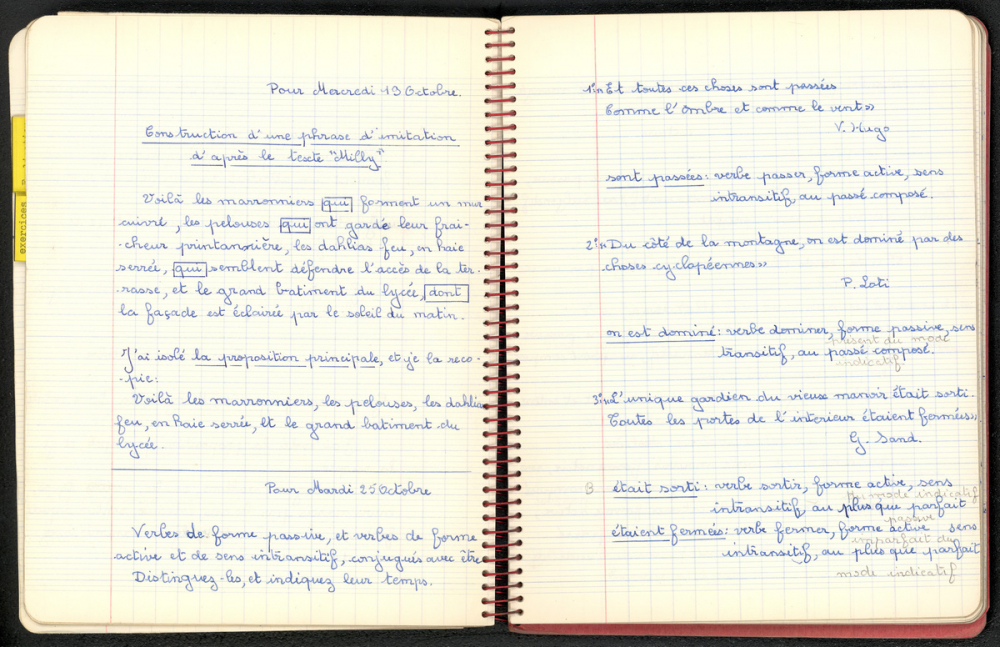 exercices
Pour Mercredi 19 Octobre.
Construction d'une phrase d'imitation
d'après le texte "Milly"
Voilà les marronniers qui forment un mur
cuivré, les pelouses qui ont gardé leur fraî-
-cheur printannière, les dahlias feu, en haie
serrée, qui semblent défendre l'accès de la ter-
rasse, et le grand batiment du lycée, dont
la façade est éclairée par le soleil du matin.
J'ai isolé la proposition principale, et je la reco-
-pie:
Voilà les marronniers, les pelouses, les dahlias
feu, en haie serrée, et le grand batiment du
lycée.
Pour Mardi 25 Octobre
Verbes de forme passive, et verbes de forme
active et de sens intransitif, conjugués avec être
Distinguez-les, et indiquez leur temps.
1°) « Et toutes ces choses sont passées
Comme l'ombre et comme le vent »
V. Hugo
sont passées: verbe passer, forme active, sens
intransitif, au passé composé.
2°) « Du côté de la montagne, on est dominé par des
choses cyclopéennes »
P. Loti
on est dominé: verbe dominer, forme passive, sens
présent du mode
transitif, au passé composé.
indicatif
3°) « L'unique gardien du vieux manoir était sorti.
Toutes les portes de l'interieur étaient fermées »
G. Sand.
B était sorti: verbe sortir, forme active, sens
du mode indicatif
intransitif, au plus que parfait
passive
étaient fermées: verbe fermer, forme active sens
imparfait du
intransitif, au plus que parfait
mode indicatif